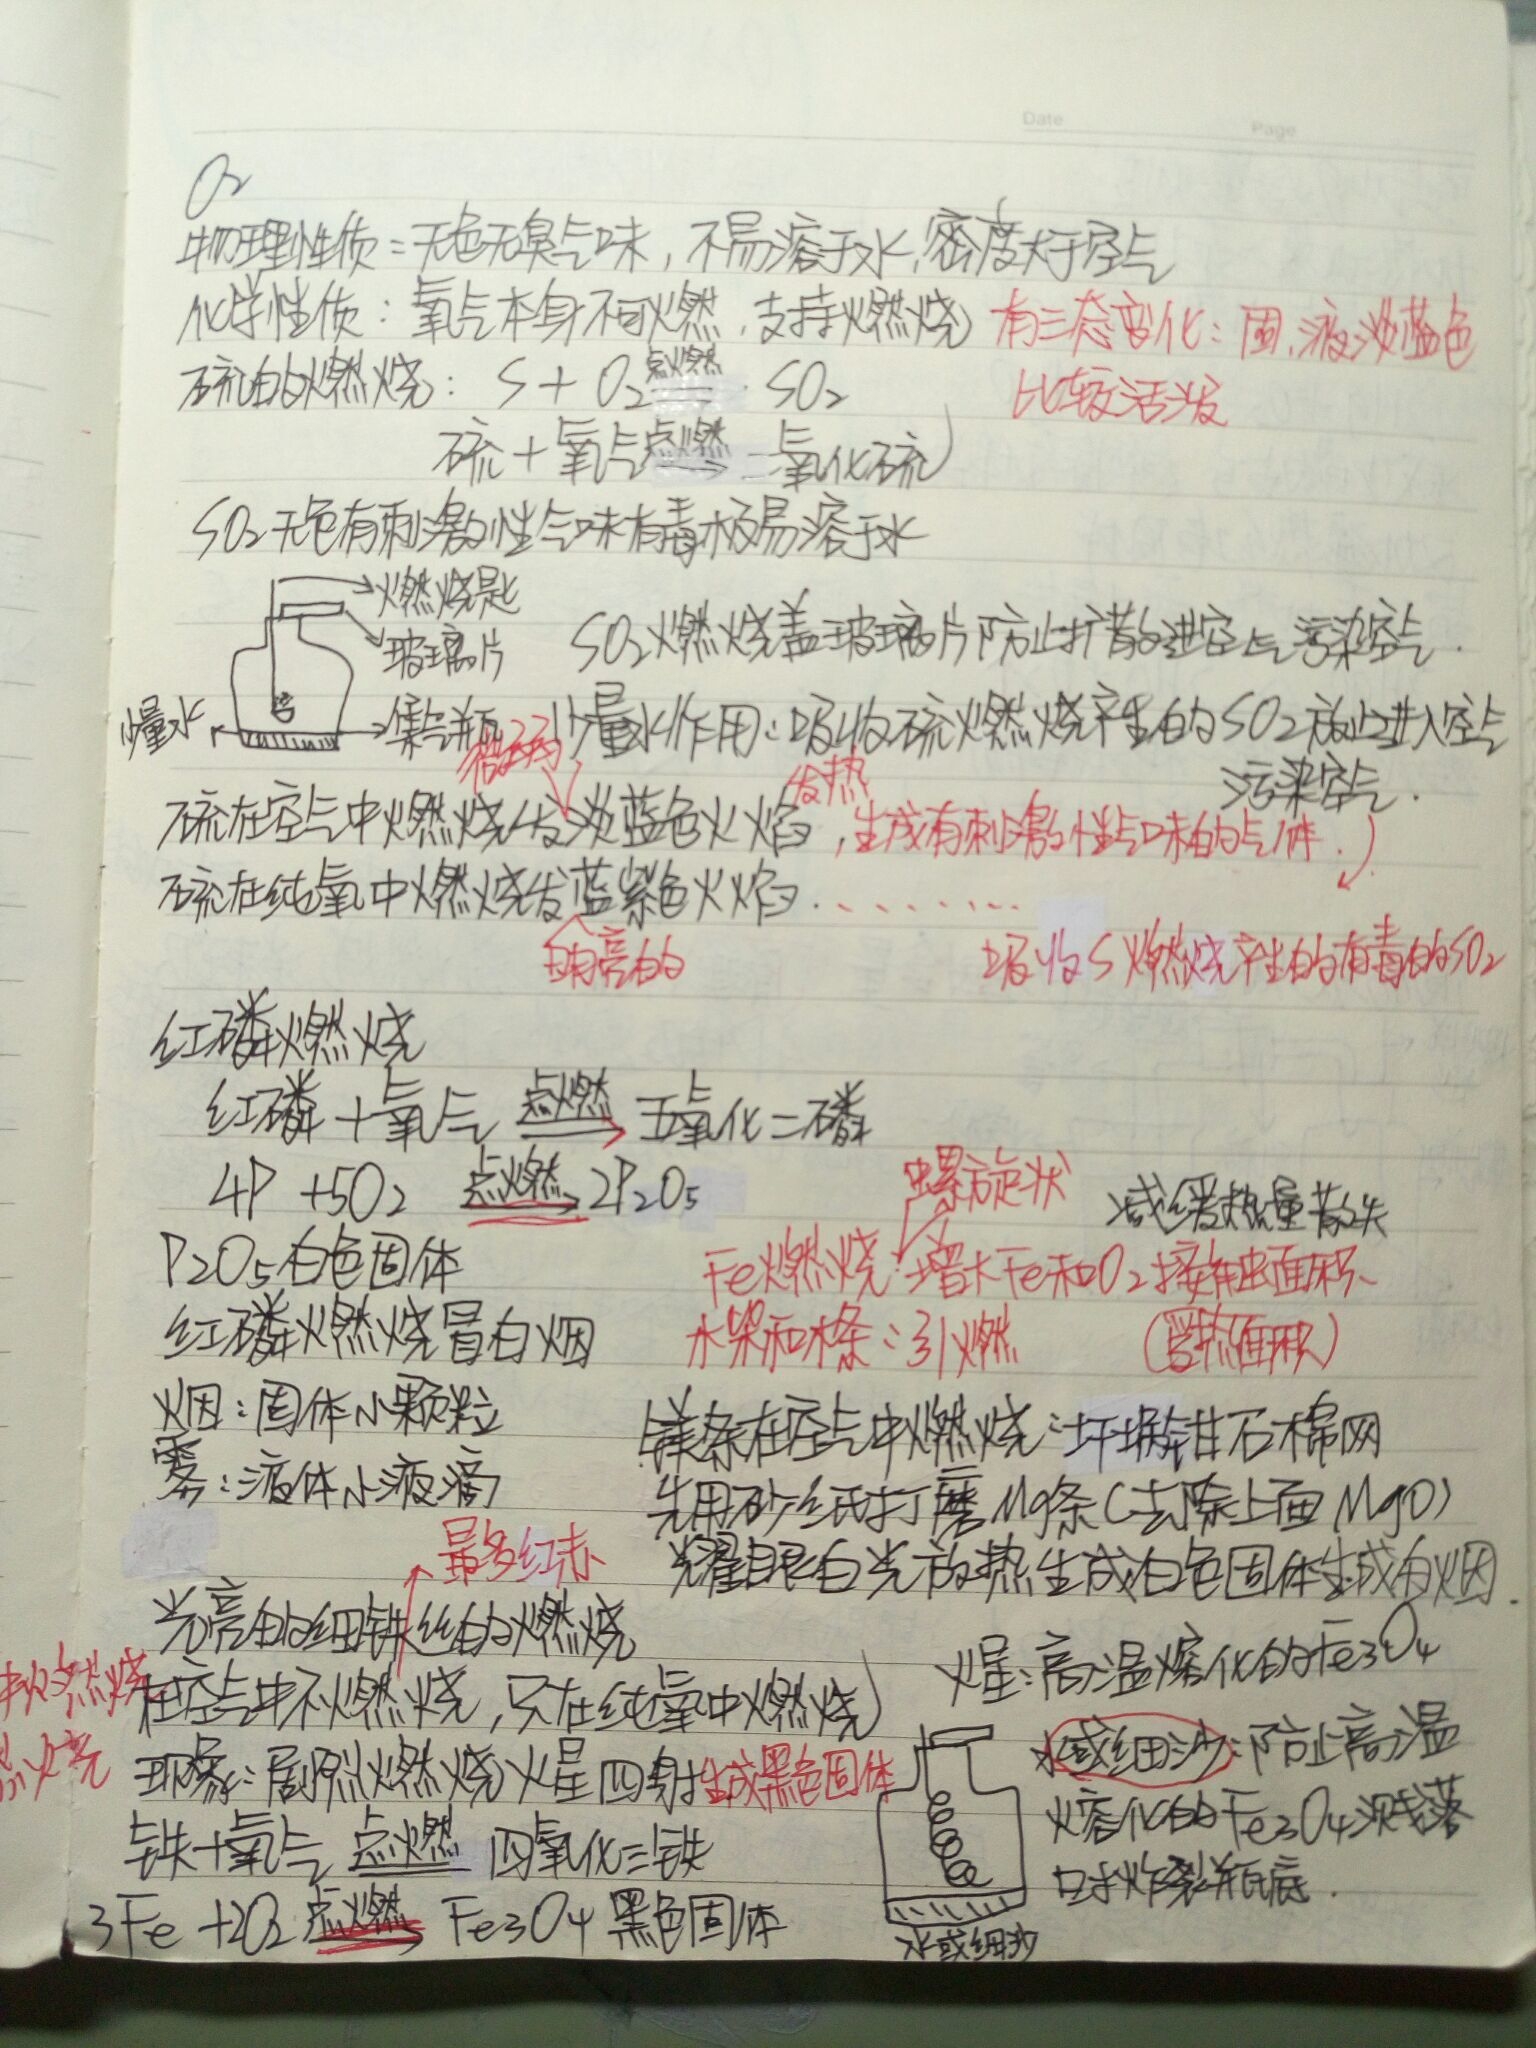 Date Page
O2
物理性质：无色无臭气味，不易溶于水，密度大于空气
化学性质：氧气本身不可燃，支持燃烧 有三态变化：固，液淡蓝色
硫的燃烧：S + O2 点燃 SO2 比较活泼
硫＋氧气 点燃 二氧化硫
SO2无色有刺激性气味有毒极易溶于水
燃烧匙
玻璃片 SO2燃烧盖玻璃片防止扩散进空气污染空气.
少量水 集气瓶 少量水作用：吸收硫燃烧产生的SO2放止进入空气
污染空气.
微弱 发热
硫在空气中燃烧发淡蓝色火焰，生成有刺激性气味的气体.
硫在纯氧中燃烧发蓝紫色火焰.........
明亮的 吸收S燃烧产生的有毒的SO2
红磷燃烧
红磷＋氧气 点燃 五氧化二磷
4P +5O2 点燃 2P2O5 螺旋状 减缓热量散失
P2O5白色固体 Fe燃烧：增大Fe和O2接触面积、
红磷燃烧冒白烟 火柴和木条：引燃 (受热面积)
烟：固体小颗粒 镁条在空气中燃烧：坩埚钳石棉网
雾：液体小液滴 先用砂纸打磨Mg条(去除上面MgO)
最多红赤 耀眼白光放热生成白色固体生成白烟.
光亮的细铁丝的燃烧
在空气中不燃烧，只在纯氧中燃烧 火星：高温熔化的Fe3O4
现象：剧烈燃烧火星四射生成黑色固体 水或细沙：防止高温
铁＋氧气 点燃 四氧化三铁 熔化的Fe3O4溅落
炸裂瓶底.
3Fe +2O2 点燃 Fe3O4黑色固体 水或细沙